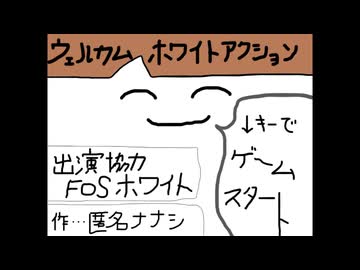 ウェルカム ホワイトアクション
↓キーで
ゲーム
スタート
出演協力
FOSホワイト
作…匿名ナナシ